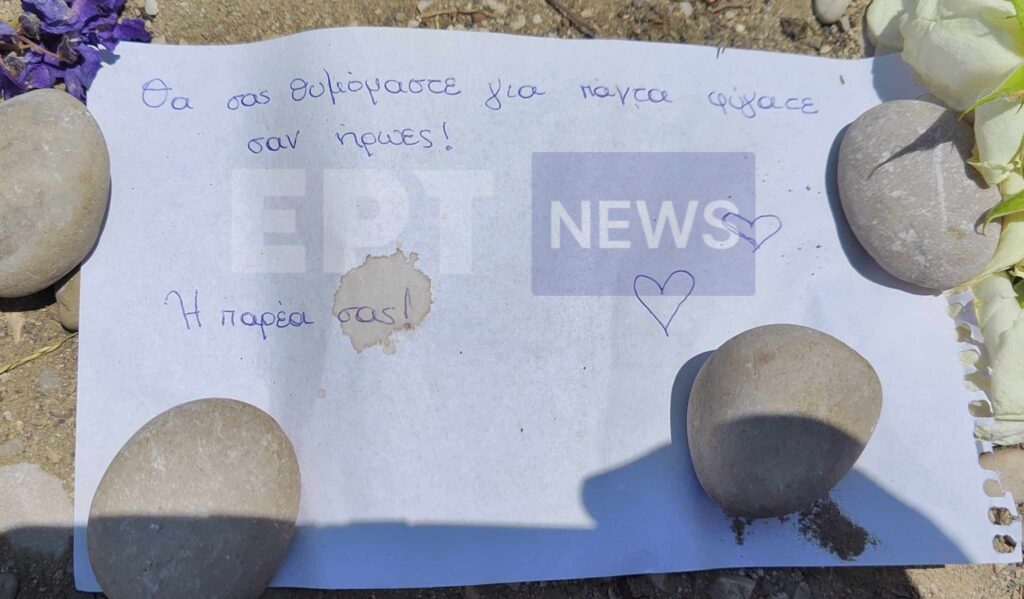 Θα σας θυμόμαστε για πάντα φύγατε
σαν ήρωες!
ΕΡΤ NEWS
Η παρέα σας!